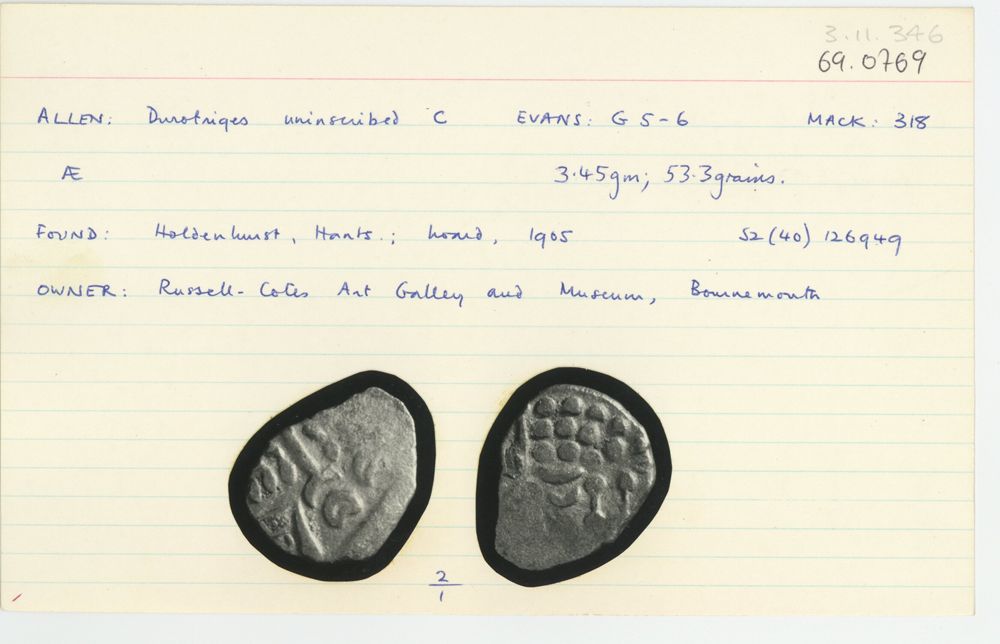 3.11.346
69.0769
ALLEN: Durotriges uninscribed C EVANS: G 5-6 MACK: 318
Æ 3.45gm; 53.3grains.
FOUND: Holdenhurst, Hants.; hoard, 1905 SZ(40) 126949
OWNER: Russell-Cotes Art Galley and Museum, Bournemouth
2
1